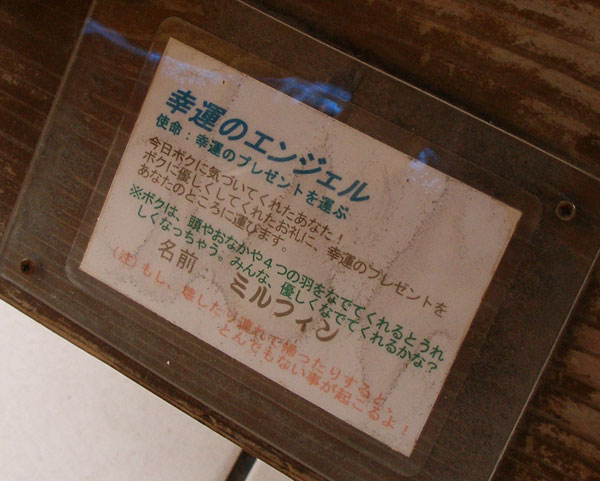 幸運のエンジェル
使命：幸運のプレゼントを運ぶ
今日ボクに気づいてくれたあなた！
ボクに優しくしてくれたお礼に、幸運のプレゼントを
あなたのところに運びます。
※ボクは、頭やおなかや４つの羽をなでてくれるとうれ
しくなっちゃう。みんな、優しくなでてくれるかな？
名前：ミルフィン
（注）もし、壊したり連れて帰ったりすると、
とんでもない事が起こるよ！